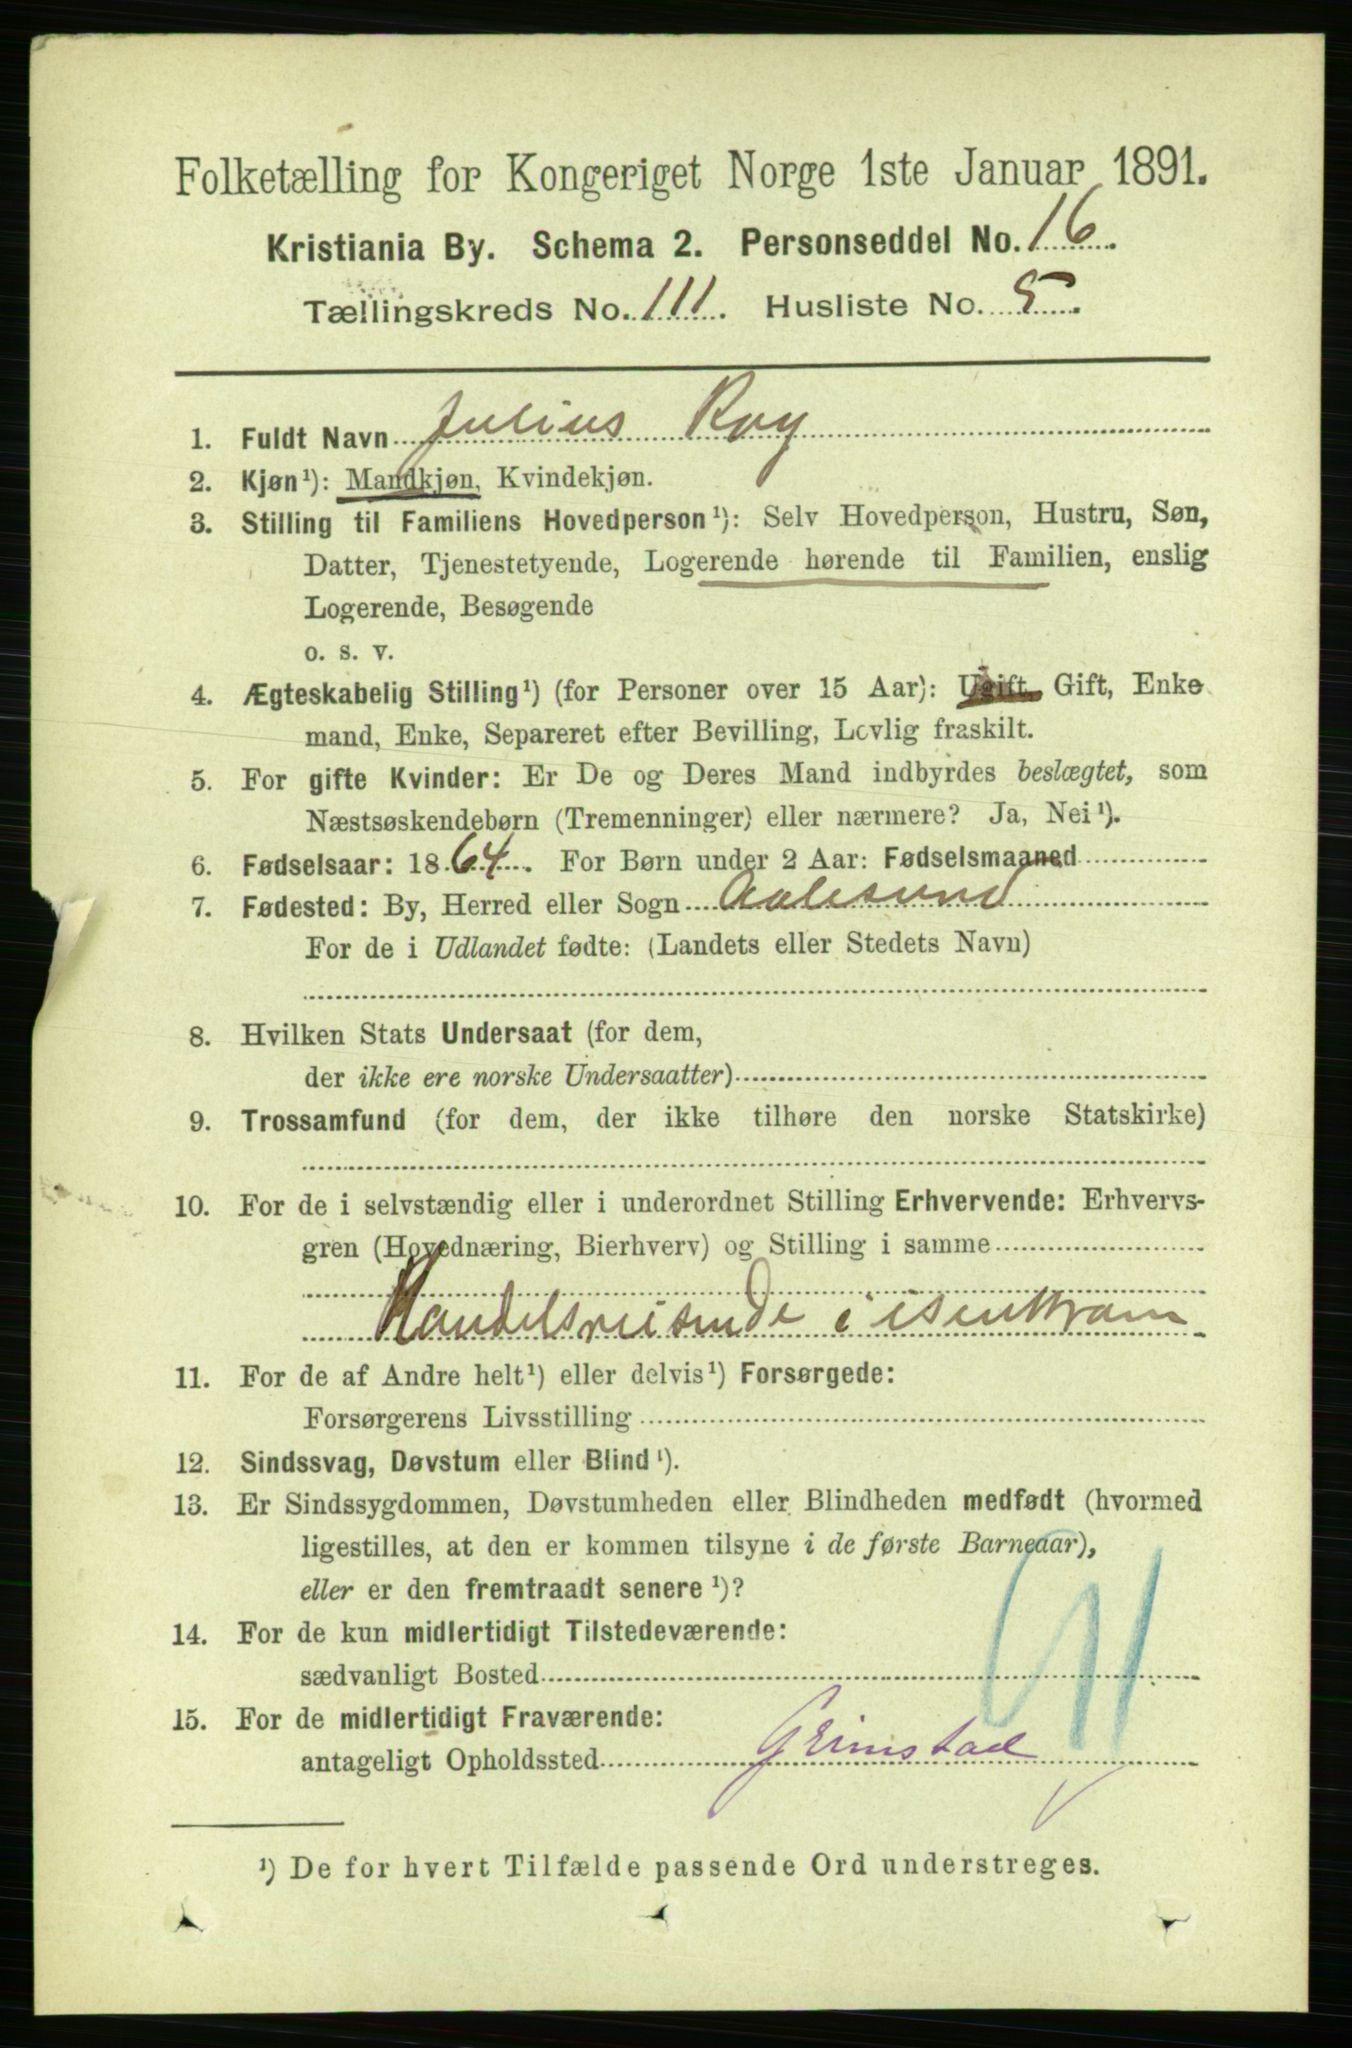 Folketælling for Kongeriget Norge 1ste Januar 1891.
Kristiania By. Schema 2. Personseddel No. 16.
Tællingskreds No. 111. Husliste No. 5.
1. Fuldt Navn Julius Roy
2. Kjøn¹): Mandkjøn, Kvindekjøn.
3. Stilling til Familiens Hovedperson¹): Selv Hovedperson, Hustru, Søn,
Datter, Tjenestetyende, Logerende hørende til Familien, enslig
Logerende, Besøgende
o. s. v.
4. Ægteskabelig Stilling¹) (for Personer over 15 Aar): Ugift, Gift, Enke-
mand, Enke, Separeret efter Bevilling, Lovlig fraskilt.
5. For gifte Kvinder: Er De og Deres Mand indbyrdes beslægtet, som
Næstsøskendebørn (Tremenninger) eller nærmere? Ja, Nei¹).
6. Fødselsaar: 1864. For Børn under 2 Aar: Fødselsmaaned
7. Fødested: By, Herred eller Sogn Aalesund
For de i Udlandet fødte: (Landets eller Stedets Navn)
8. Hvilken Stats Undersaat (for dem,
der ikke ere norske Undersaatter)
9. Trossamfund (for dem, der ikke tilhøre den norske Statskirke)
10. For de i selvstændig eller i underordnet Stilling Erhvervende: Erhvervs-
gren (Hovednæring, Bierhverv) og Stilling i samme
Handelsreisende i isenkram
11. For de af Andre helt¹) eller delvis¹) Forsørgede:
Forsørgerens Livsstilling
12. Sindssvag, Døvstum eller Blind¹).
13. Er Sindssygdommen, Døvstumheden eller Blindheden medfødt (hvormed
ligestilles, at den er kommen tilsyne i de første Barneaar),
eller er den fremtraadt senere¹)?
14. For de kun midlertidigt Tilstedeværende:
sædvanligt Bosted
15. For de midlertidigt Fraværende:
antageligt Opholdssted Grimstad
¹) De for hvert Tilfælde passende Ord understreges.